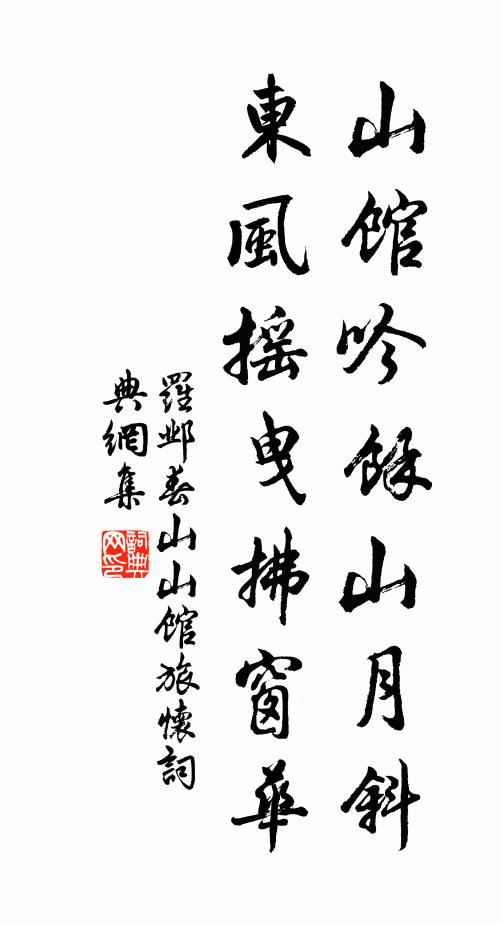 山館吟餘山月斜
東風摇曳拂窗華
羅鄴春山山館旅懷詞
典網集
詞典
网印